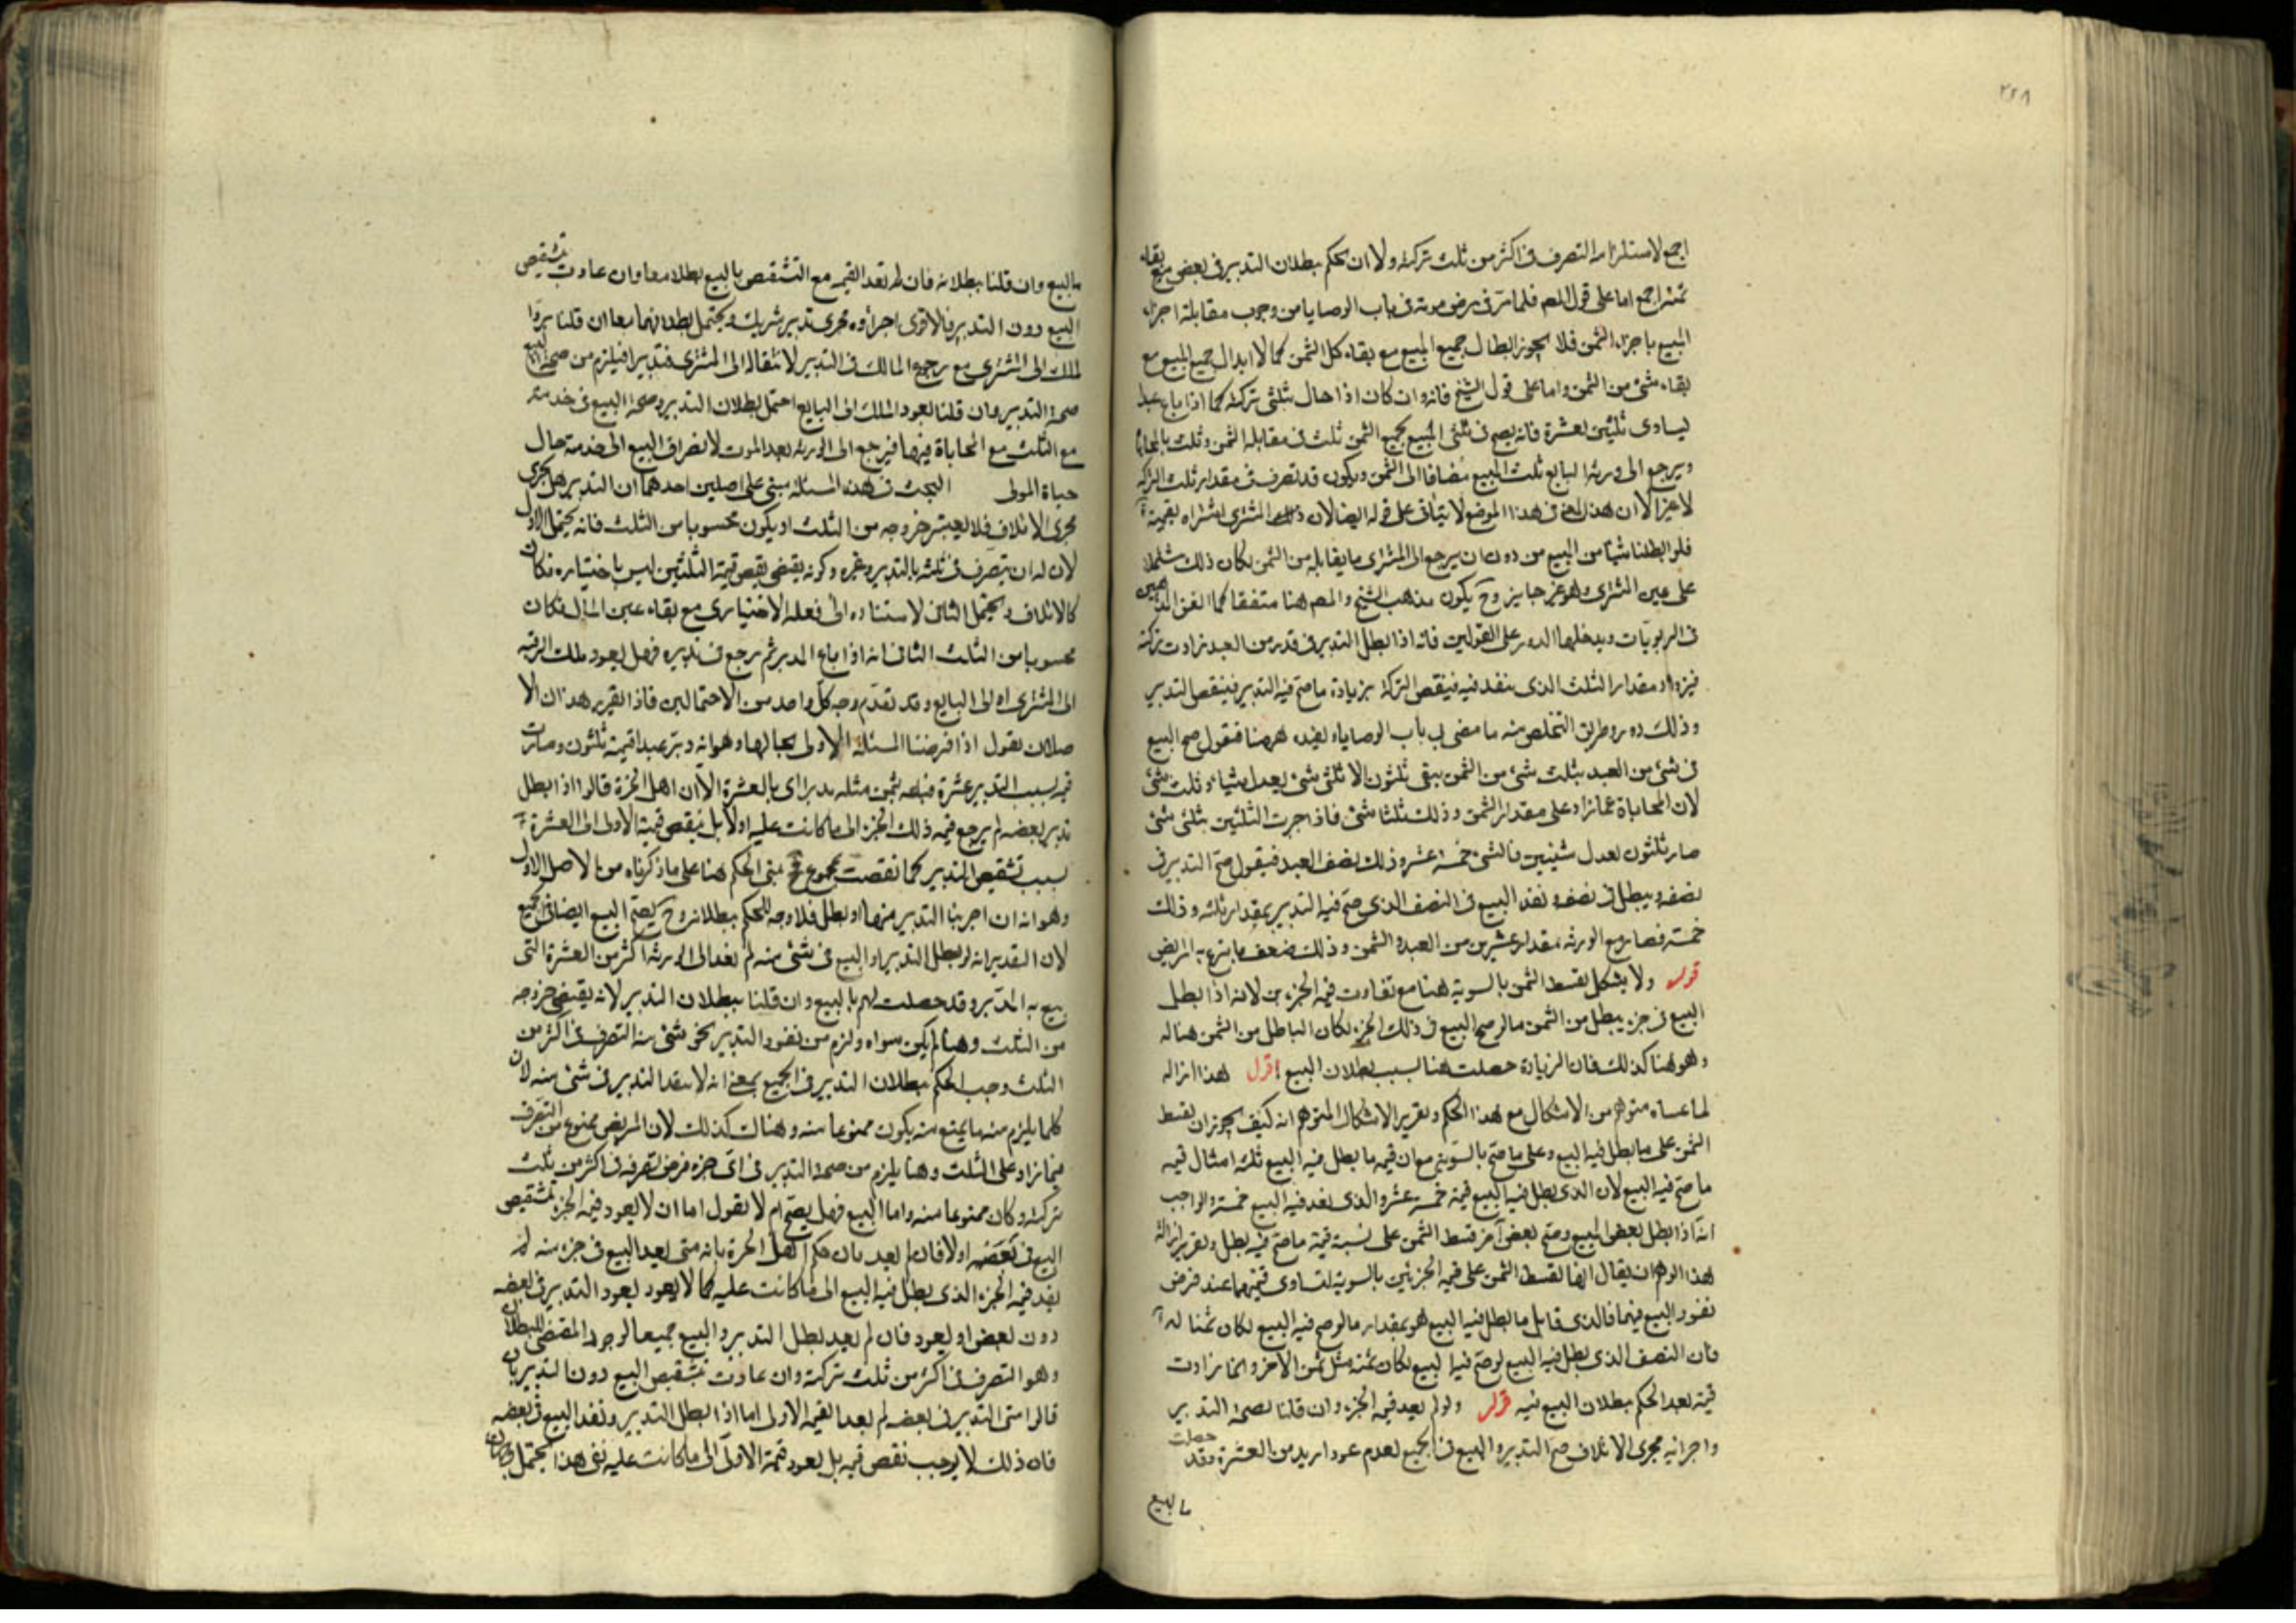 ٢٤٨
اجمع لاستلزامه التصرف فى اكثر من ثلث تركته ولا ان يحكم ببطلان التدبير فى بعض مع بقاء
ثمنه اجمع اما على قول المصر فلما مر فى مرض موته فى باب الوصايا من وجوب مقابلة اجزاء
المبيع باجزاء الثمن فلا يجوز ابطال جميع المبيع مع بقاء كل الثمن كما لا ابدال جميع المبيع مع
بقاء شئ من الثمن واما على قول الشيخ فانه وان كان اذا حال بثلثى تركته كما اذا باع عبدا
يساوى ثلثين بعشرة فانه يصح فى ثلثى المبيع بجميع الثمن ثلث فى مقابله الثمن وثلث بالمحاباة
ويرجع الى ورثة البايع ثلث المبيع مضافا الى الثمن ويكون قد تصرف فى مقدار ثلث التركه
لا غير الا ان هذا المعنى فى هذا الموضع لا يتأتى على قوله ايضا لان ذلك المشترى اشتراه بقيمته
فلو ابطلنا شيئا من البيع من دون ان يرجع الى المشترى ما يقابله من الثمن لكان ذلك
على المشترى وهو غير جايز وح يكون مذهب الشيخ والمصر هنا متفقا كما اتفق المذهبين
فى الربويات ويدخلها الدور على القولين فانه اذا بطل التدبير فى قدر من العبد زادت تركته
فيزداد مقدار الثلث الذى ينفذ فيه فينقص التركة بزيادة ما صح فيه التدبير فينقص التدبير
وذلك دور وطريق التخلص منه ما مضى فى باب الوصايا ههنا فنقول صح البيع
فى شئ من العبد بثلث شئ من الثمن يبقى ثلثون الا ثلثى شئ يعدل شيئا وثلث شئ
لان المحاباة بما زاد على مقدار الثمن وذلك ثلثا شئ فاذا جبرت الثلثين بثلثى شئ
صار ثلثون يعدل شيئين فالشئ خمسة عشر وذلك نصف العبد فيقول صح التدبير فى
نصفه ويبطل فى نصفه ونفذ البيع فى النصف الذى صح فيه التدبير بمقدار ثلثه وذلك
خمسة فصار مع الورثه مقدار عشرين من العبد والثمن وذلك ضعف ما تبرع به المريض
قوله ولا يشكل تقسط الثمن بالسوية هنا مع تفاوت قيمة الجزءين لانه اذا بطل
البيع فى جزء يبطل من الثمن ما لو صح البيع فى ذلك الجزء لكان الباطل من الثمن هنا له
وهو هنا كذلك فان الزيادة حصلت هنا بسبب بطلان البيع اقول هذا ازاله
لما عساه متوهم من الاشكال مع هذا الحكم وتقرير الاشكال المتوهم انه كيف يجوز ان يقسط
الثمن على ما بطل فيه البيع وعلى ما صح بالسوية مع ان قيمة ما بطل فيه البيع ثلثه امثال قيمه
ما صح فيه البيع لان الذى بطل فيه البيع قيمته خمسه عشر والذى نفذ فيه البيع خمسة والواجب
انه اذا بطل بعض المبيع وصح بعض آخر قسط الثمن على نسبة قيمة ما صح فيه وبطل وتقرير ازالة
هذا الوهم ان يقال انما تقسط الثمن على قيمه الجزئين بالسوية لتساوى قيمتهما عند فرض
نفوذ البيع فيهما فالذى قابل ما بطل فيه البيع هو بمقدار ما لو صح فيه البيع لكان ثمنا له
فان النصف الذى بطل فيه البيع لو صح فيه البيع لكان ثمنه مثل ثمن الآخر وانما زادت
قيمته بعد الحكم ببطلان البيع فيه قوله ولو لم يعد قيمه الجزء وان قلنا بصحة التدبير
واجرائه مجرى الاتلاف صح التدبير والبيع فى الجميع لعدم عود ازيد من العشرة وقد حصلت
بالبيع
بالبيع وان قلنا ببطلانه فان لم تعد القيمه مع التشقيص بالبيع بطلا معا وان عادت بتشقيص
البيع دون التدبير فالاقوى اجراؤه مجرى تدبير شريك ويحتمل بطلانهما معا ان قلنا بردا
لملك الى المشترى مع رجوع المالك فى التدبير لانتقاله الى المشترى فتدبير افيلزم من صحة البيع
صحة التدبير وان قلنا بعود الملك الى البايع احتمل بطلان التدبير وصحة البيع فى خدمته
مع الثلث مع المحاباة فيها فيرجع الى الورثه بعد الموت لانصراف البيع الى خدمته حال
حياة المولى البحث فى هذه المسئلة مبنى على اصلين احدهما ان التدبير هل يجرى
مجرى الاتلاف فلا يعتبر خروجه من الثلث او يكون محسوبا من الثلث فانه يحتمل الاول
لان له ان يتصرف فى ثلثه بالتدبير وغيره وكونه يقتضى نقص قيمة الثلثين ليس باختياره فكان
كالاتلاف ويحتمل الثانى لاستناده الى فعله الاختيارى مع بقاء عين المال فكان
محسوبا من الثلث الثانى انه اذا باع المدبر ثم رجع فى تدبيره فهل يعود ملك الرقبه
الى المشترى او الى البايع وقد تقدم وجه كل واحد من الاحتمالين فاذا تقرر هذان الا
صلان نقول اذا فرضنا المسئلة الاولى بحالها وهو انه دبر عبدا قيمة ثلثون وصارت
قيمته بسبب التدبير عشرة فباعه بثمن مثله مدبرا اى بالعشرة الا ان اهل الخبرة قالوا اذا بطل
تدبير بعضه لم يرجع قيمه ذلك الجزء الى ما كانت عليه اولا بل ينقص قيمة الاولى الى العشرة
بسبب تشقيص التدبير كما نقصت بمجموع فح يبنى الحكم هنا على ما ذكرناه من الاصل الاول
وهو انه ان اجرينا التدبير منها او بطل فلا وجه للحكم ببطلانه وح يصح البيع ايضا فى الجميع
لان التقدير انه لو بطل التدبير او البيع فى شئ منه لم يعد الى الورثة اكثر من العشرة التى
بيع به المدبر وقد حصلت لهم بالبيع وان قلنا ببطلان التدبير لانه يقتضى خروجه
من الثلث وهنا لم يكن سواه ولزم من نفوذ التدبير نحو شئ منه التصرف فى اكثر من
الثلث وجب الحكم ببطلان التدبير فى الجميع بمعنى انه لا ينفذ التدبير فى شئ منه لان
كلما يلزم منه ما يمتنع منه يكون ممنوعا منه وهناك كذلك لان المريض ممنوع من التصرف
فيما زاد على الثلث وهنا يلزم من صحة التدبير فى اى جزء فرض تصرفه فى اكثر من ثلث
تركته وكان ممنوعا منه واما البيع فهل يصح ام لا نقول اما ان لا يعود قيمه الجزء بتشقيص
البيع فى بعضه اولا فان لم يعد بان حكم اهل الخبرة بانه متى يعد البيع فى جزء منه لم
يعد قيمه الجزء الذى بطل فيه البيع الى ما كانت عليه كما لا يعود بعود التدبير فى بعضه
دون بعض او يعود فان لم يعد بطل التدبير والبيع جميعا لوجود المقتضى للبطلان
وهو التصرف فى اكثر من ثلث تركته وان عادت بتشقيص البيع دون التدبير بان
قالوا متى التدبير فى بعضه لم يعد القيمه الاولى اما اذا بطل التدبير ونفذ البيع فى بعضه
فان ذلك لا يوجب نقص قيمه بل يعود قيمة الاولى الى ما كانت عليه نفى هذا يحتمل